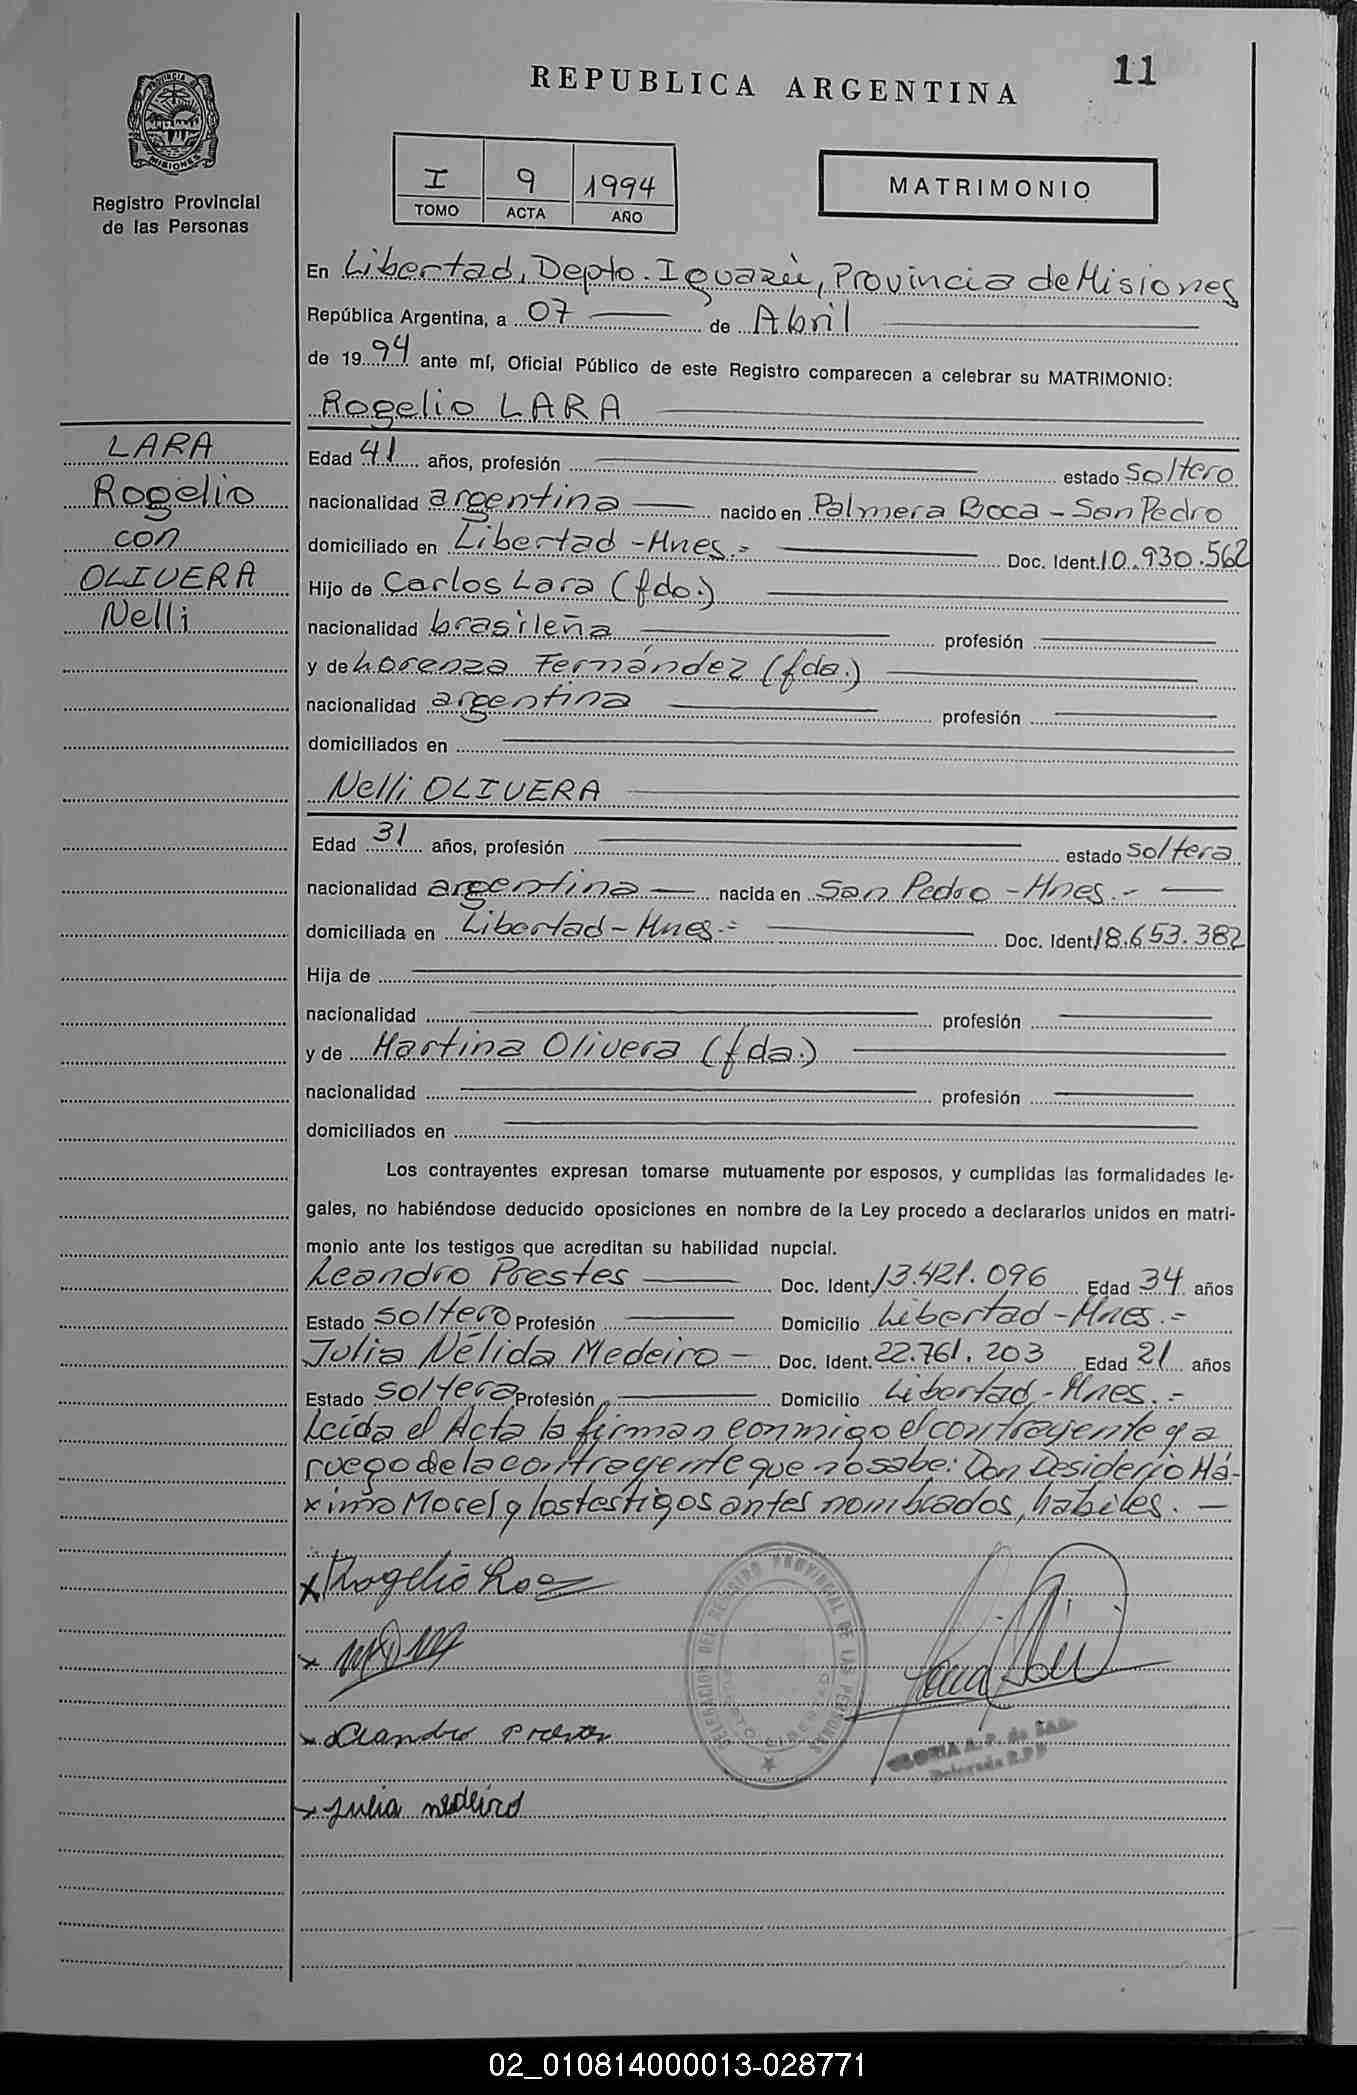 11
REPUBLICA ARGENTINA
PROVINCIA DE MISIONES
Registro Provincial
de las Personas
I 9 1994
TOMO ACTA AÑO
MATRIMONIO
En Libertad, Depto. Iguazú, Provincia de Misiones
República Argentina, a 07 de Abril
de 1994 ante mí, Oficial Público de este Registro comparecen a celebrar su MATRIMONIO:
Rogelio LARA
LARA
Rogelio
con
OLIVERA
Nelli
Edad 41 años, profesión estado soltero
nacionalidad argentina nacido en Palmera Boca - San Pedro
domiciliado en Libertad - Mnes.= Doc. Ident. 10.930.562
Hijo de Carlos Lara (fdo.)
nacionalidad brasileña profesión
y de Lorenza Fernández (fda.)
nacionalidad argentina profesión
domiciliados en
Nelli OLIVERA
Edad 31 años, profesión estado soltera
nacionalidad argentina nacida en San Pedro - Mnes.-
domiciliada en Libertad - Mnes.= Doc. Ident 18.653.382
Hija de
nacionalidad profesión
y de Martina Olivera (fda.)
nacionalidad profesión
domiciliados en
Los contrayentes expresan tomarse mutuamente por esposos, y cumplidas las formalidades le-
gales, no habiéndose deducido oposiciones en nombre de la Ley procedo a declararlos unidos en matri-
monio ante los testigos que acreditan su habilidad nupcial.
Leandro Prestes Doc. Ident. 13.421.096 Edad 34 años
Estado soltero Profesión Domicilio Libertad - Mnes.=
Julia Nélida Medeiro - Doc. Ident. 22.761.203 Edad 21 años
Estado soltera Profesión Domicilio Libertad - Mnes.=
Leída el Acta la firman conmigo el contrayente y a
ruego de la contrayente que no sabe: Don Desiderio Má-
ximo Morel y los testigos antes nombrados, habiles.
x Rogelio Lara
DELEGACION DEL REGISTRO PROVINCIAL DE LAS PERSONAS
PUERTO LIBERTAD
x Leandro Prestes
GLORIA A. P. de
Delegada R.P.P
x Julia medeiro
02_010814000013-028771